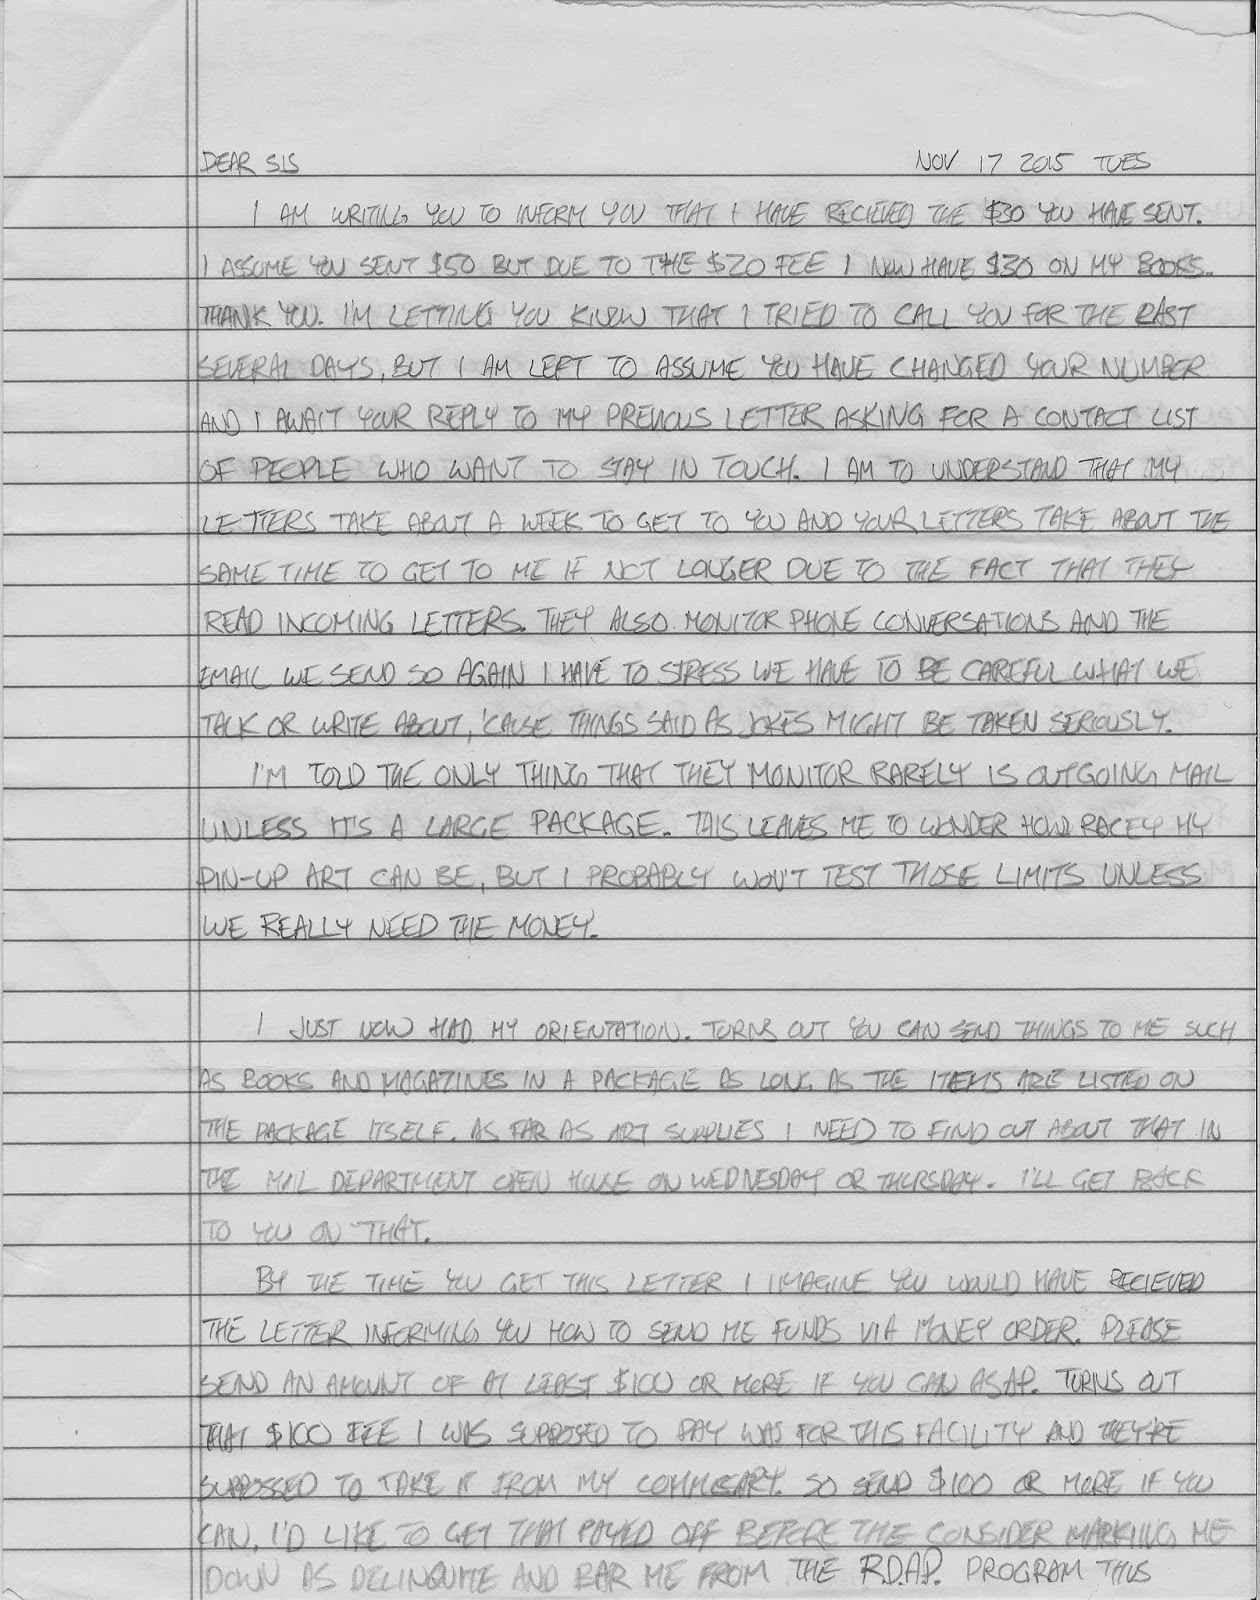 DEAR SIS NOV 17 2015 TUES
I AM WRITING YOU TO INFORM YOU THAT I HAVE RECIEVED THE $30 YOU HAVE SENT.
I ASSUME YOU SENT $50 BUT DUE TO THE $20 FEE I NOW HAVE $30 ON MY BOOKS.
THANK YOU. I'M LETTING YOU KNOW THAT I TRIED TO CALL YOU FOR THE PAST
SEVERAL DAYS, BUT I AM LEFT TO ASSUME YOU HAVE CHANGED YOUR NUMBER
AND I AWAIT YOUR REPLY TO MY PREVIOUS LETTER ASKING FOR A CONTACT LIST
OF PEOPLE WHO WANT TO STAY IN TOUCH. I AM TO UNDERSTAND THAT MY
LETTERS TAKE ABOUT A WEEK TO GET TO YOU AND YOUR LETTERS TAKE ABOUT THE
SAME TIME TO GET TO ME IF NOT LONGER DUE TO THE FACT THAT THEY
READ INCOMING LETTERS. THEY ALSO MONITOR PHONE CONVERSATIONS AND THE
EMAIL WE SEND SO AGAIN I HAVE TO STRESS WE HAVE TO BE CAREFUL WHAT WE
TALK OR WRITE ABOUT, 'CAUSE THINGS SAID AS JOKES MIGHT BE TAKEN SERIOUSLY.
I'M TOLD THE ONLY THING THAT THEY MONITOR RARELY IS OUTGOING MAIL
UNLESS IT'S A LARGE PACKAGE. THIS LEAVES ME TO WONDER HOW RACEY MY
PIN-UP ART CAN BE, BUT I PROBABLY WON'T TEST THOSE LIMITS UNLESS
WE REALLY NEED THE MONEY.
I JUST NOW HAD MY ORIENTATION. TURNS OUT YOU CAN SEND THINGS TO ME SUCH
AS BOOKS AND MAGAZINES IN A PACKAGE AS LONG AS THE ITEMS ARE LISTED ON
THE PACKAGE ITSELF. AS FAR AS ART SUPPLIES I NEED TO FIND OUT ABOUT THAT IN
THE MAIL DEPARTMENT OPEN HOUSE ON WEDNESDAY OR THURSDAY. I'LL GET BACK
TO YOU ON THAT.
BY THE TIME YOU GET THIS LETTER I IMAGINE YOU WOULD HAVE RECIEVED
THE LETTER INFORMING YOU HOW TO SEND ME FUNDS VIA MONEY ORDER. PLEASE
SEND AN AMOUNT OF AT LEAST $100 OR MORE IF YOU CAN ASAP. TURNS OUT
THAT $100 FEE I WAS SUPPOSED TO PAY WAS FOR THIS FACILITY AND THEY'RE
SUPPOSSED TO TAKE IT FROM MY COMMISARY. SO SEND $100 OR MORE IF YOU
CAN, I'D LIKE TO GET THAT PAYED OFF BEFORE THE CONSIDER MARKING ME
DOWN AS DELINQUITE AND BAR ME FROM THE R.D.A.P. PROGRAM THUS